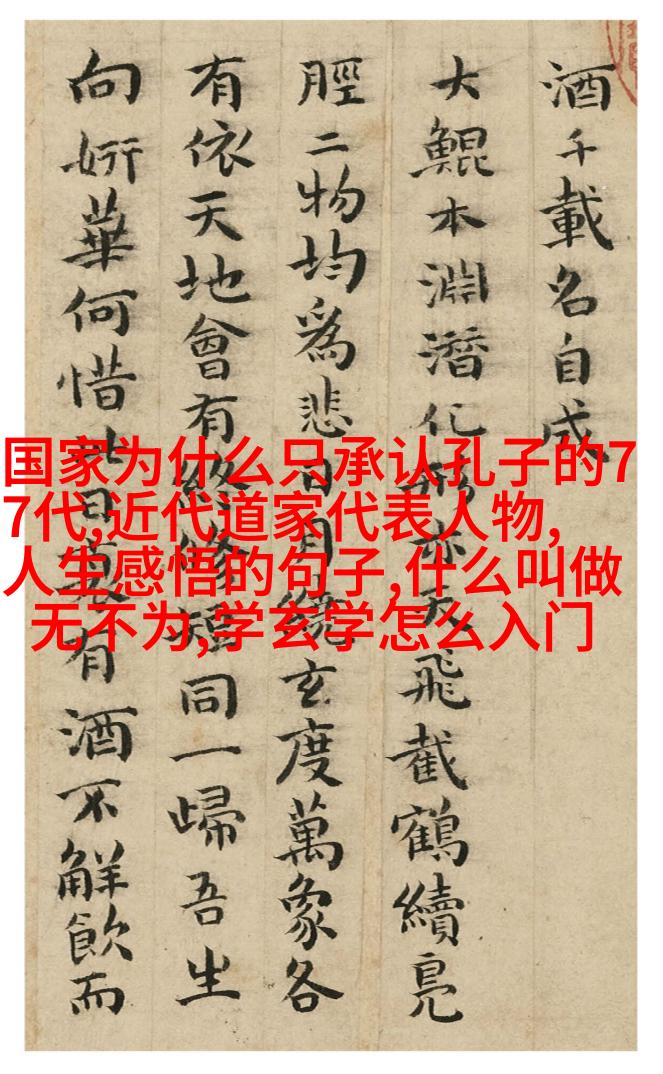 酒千載名自成
大鯤本淵潛化形亦天飛截鶴續鳧
脛二物均爲悲日月繞玄度萬象各
有依天地會有終脩短同一歸吾生
向妍華何惜此日莫有酒不觧飲而
国家为什么只承认孔子的7
7代,近代道家代表人物,
人生感悟的句子,什么叫做
无不为,学玄学怎么入门